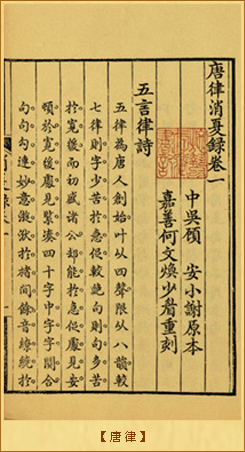 唐律消夏録卷一
中吳顧 安小謝原本
嘉善何文煥少眉重刻
五言律詩
五律為唐人創始叶以四聲限以八韻較
七律則字少苦於急促較絶句則句多苦
於寬緩而初盛諸公却能於急促處見安
頓於寬緩處見緊湊四十字中字字開合
句句勾連妙意於楮間餘音繚繞於
【唐律】